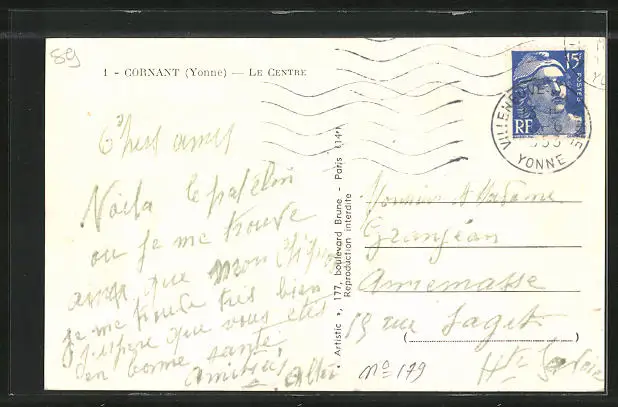 89
1 - CORNANT (Yonne) — LE CENTRE
15F
POSTES
RF
VILLENEUVE
YONNE
Chers amis
Voila le patelin
ou je me trouve
ainsi que mon
je me trouve très bien
j'espère que vous êtes
en bonne santé
Amitiés
" Artistic ", 177, boulevard Brune - Paris (14e)
Reproduction interdite
Monsieur et Madame
Granjean
Annemasse
59 rue Saget
Hte Savoie
No 179